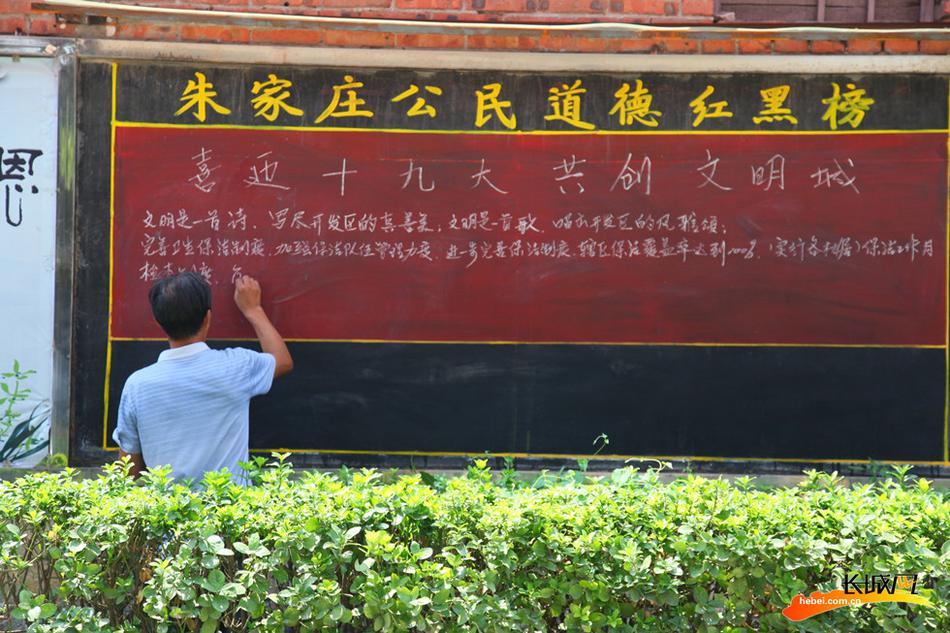 朱家庄公民道德红黑榜
喜迎十九大 共创文明城
文明是一首诗,写尽开发区的真善美;文明是一首歌,唱出开发区的风雅颂;
完善卫生保洁制度,加强保洁队伍管理力度,进一步完善保洁制度,辖区保洁覆盖率达到100%,实行各村(居)保洁工作月
检查制度,
恩
长城网
hebei.com.cn